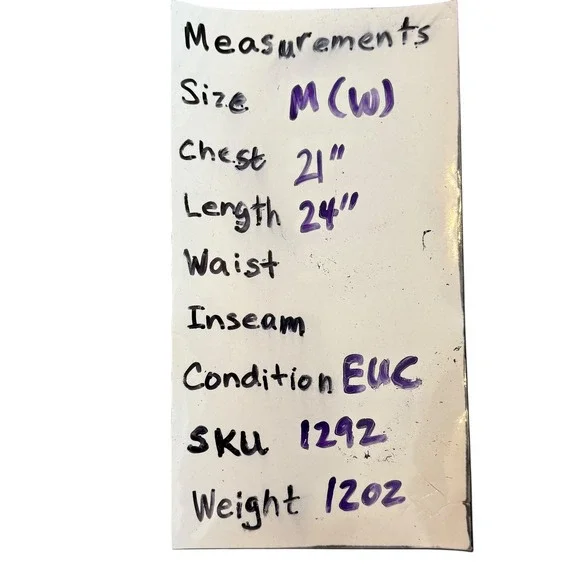 Measurements
Size M(W)
Chest 21"
Length 24"
Waist
Inseam
Condition EUC
SKU 1292
Weight 12oz